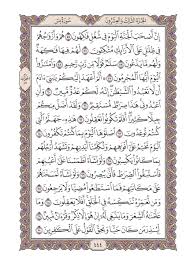 الجزء الثالث والعشرون سورة يس
إِنَّ أَصْحَٰبَ ٱلْجَنَّةِ ٱلْيَوْمَ فِى شُغُلٍ فَٰكِهُونَ ٥٥ هُمْ وَأَزْوَٰجُهُمْ
فِى ظِلَٰلٍ عَلَى ٱلْأَرَآئِكِ مُتَّكِـُٔونَ ٥٦ لَهُمْ فِيهَا فَٰكِهَةٌ
وَلَهُم مَّا يَدَّعُونَ ٥٧ سَلَٰمٌ قَوْلًا مِّن رَّبٍّ رَّحِيمٍ ٥٨ وَٱمْتَٰزُوا۟
ٱلْيَوْمَ أَيُّهَا ٱلْمُجْرِمُونَ ٥٩ أَلَمْ أَعْهَدْ إِلَيْكُمْ يَٰبَنِىٓ ءَادَمَ
أَن لَّا تَعْبُدُوا۟ ٱلشَّيْطَٰنَ إِنَّهُۥ لَكُمْ عَدُوٌّ مُّبِينٌ ٦٠
وَأَنِ ٱعْبُدُونِى هَٰذَا صِرَٰطٌ مُّسْتَقِيمٌ ٦١ وَلَقَدْ أَضَلَّ مِنكُمْ
جِبِلًّا كَثِيرًا أَفَلَمْ تَكُونُوا۟ تَعْقِلُونَ ٦٢ هَٰذِهِۦ جَهَنَّمُ ٱلَّتِى
كُنتُمْ تُوعَدُونَ ٦٣ ٱصْلَوْهَا ٱلْيَوْمَ بِمَا كُنتُمْ تَكْفُرُونَ ٦٤
ٱلْيَوْمَ نَخْتِمُ عَلَىٰٓ أَفْوَٰهِهِمْ وَتُكَلِّمُنَآ أَيْدِيهِمْ وَتَشْهَدُ أَرْجُلُهُم
بِمَا كَانُوا۟ يَكْسِبُونَ ٦٥ وَلَوْ نَشَآءُ لَطَمَسْنَا عَلَىٰٓ أَعْيُنِهِمْ
فَٱسْتَبَقُوا۟ ٱلصِّرَٰطَ فَأَنَّىٰ يُبْصِرُونَ ٦٦ وَلَوْ نَشَآءُ لَمَسَخْنَٰهُمْ
عَلَىٰ مَكَانَتِهِمْ فَمَا ٱسْتَطَٰعُوا۟ مُضِيًّا وَلَا يَرْجِعُونَ ٦٧
وَمَن نُّعَمِّرْهُ نُنَكِّسْهُ فِى ٱلْخَلْقِ أَفَلَا يَعْقِلُونَ ٦٨ وَمَا
عَلَّمْنَٰهُ ٱلشِّعْرَ وَمَا يَنۢبَغِى لَهُۥٓ إِنْ هُوَ إِلَّا ذِكْرٌ وَقُرْءَانٌ مُّبِينٌ ٦٩
لِّيُنذِرَ مَن كَانَ حَيًّا وَيَحِقَّ ٱلْقَوْلُ عَلَى ٱلْكَٰفِرِينَ ٧٠
٤٤٤